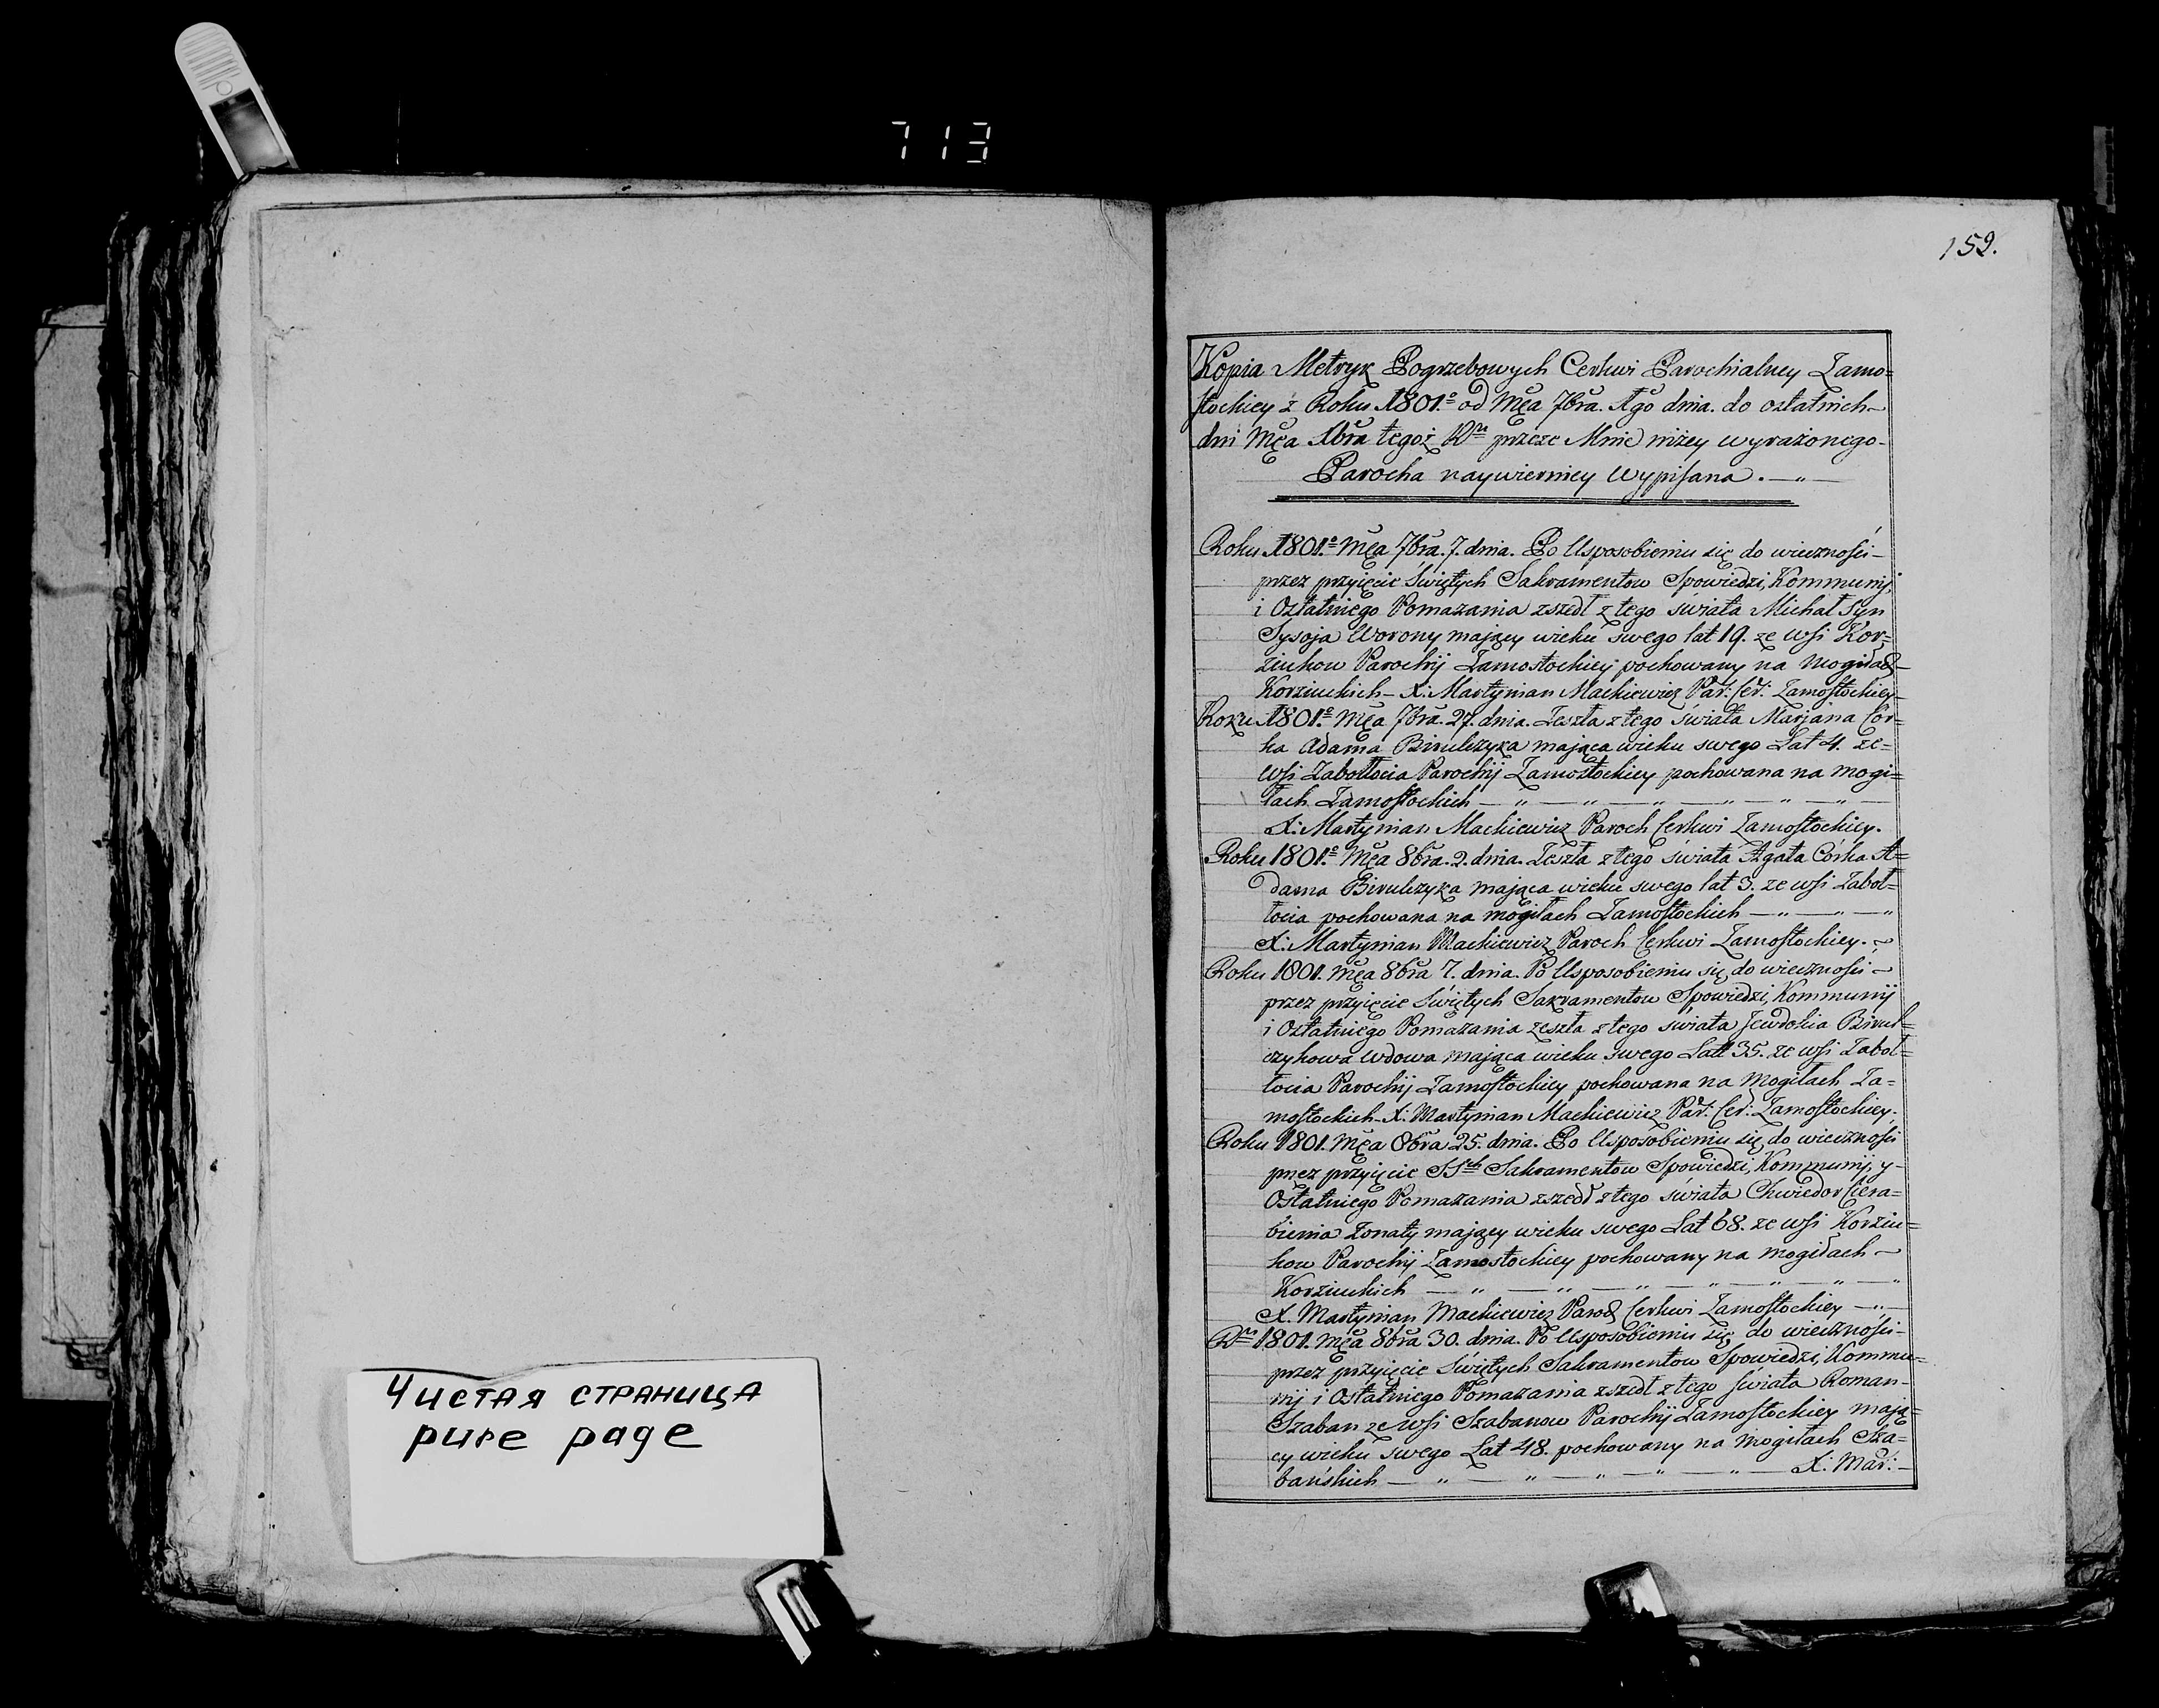 713
159.
Kopia Metryk Pogrzebowych Cerkwi Parochialney Zamo=
stockiey z Roku 1801.o od Mca 7bra. 1go dnia. do ostatnich
dni Mca Xbra tegoż Ru przeze Mnie niżey wyrażonego
Parocha naywierniey wypisana.
Roku 1801.o Mca 7bra. 7. dnia. Po Usposobieniu się do wieczności
przez przyięcie Świętych Sakramentow Spowiedzi, Kommunij,
i Ostatniego Pomazania zszedł z tego świata Michał Syn
Sysoja Worony maiący wieku swego lat 19. ze wsi Kor=
ziukow Parochij Zamostockiey pochowany na Mogiłach
Korziuckich X: Martynian Mackiewicz Par: Cer: Zamostockiey
Roku 1801.o Mca 7bra. 27. dnia. Zeszła z tego świata Marjana Cor=
ka Adama Birulczyka mająca wieku swego Lat 4. ze=
wsi Zabołłocia Parochij Zamostockiey pochowana na mogi=
łach Zamostockich
X: Martynian Mackiewicz Paroch Cerkwi Zamostockiey.
Roku 1801.o Mca 8bra. 2. dnia. Zeszła z tego świata Agata Córka A=
dama Birulczyka mająca wieku swego lat 3. ze wsi Zaboł=
łocia pochowana na mogiłach Zamostockich
X: Martynian Mackiewicz Paroch Cerkwi Zamostockiey.
Roku 1801. Mca 8bra 7. dnia. Po Usposobieniu się do wieczności
przez przyięcie Świętych Sakramentow Spowiedzi, Kommunij
i Ostatniego Pomazania zeszła z tego świata Jewdokia Birul=
czykowa wdowa mająca wieku swego Lat 35. ze wsi Zaboł=
łocia Parochij Zamostockiey pochowana na Mogiłach Za=
mostockich X: Martynian Mackiewicz Par: Cer: Zamostockiey.
Roku 1801. Mca 8bra 25. dnia. Po Usposobieniu się do wieczności
przez przyięcie SSch Sakramentow Spowiedzi, Kommunij, y
Ostatniego Pomazania zszedł z tego świata Chwiedor Ciera=
bienia Żonaty maiący wieku swego Lat 68. ze wsi Korziu=
kow Parochij Zamostockiey pochowany na mogiłach
Korziuckich
X. Martynian Mackiewicz Paroch Cerkwi Zamostockiey
Ru 1801. Mca 8bra 30. dnia. Po Usposobieniu się do wieczności
przez przyięcie Świętych Sakramentow Spowiedzi, Kommu=
nij i Ostatniego Pomazania zszedł z tego świata Roman
Szaban ze wsi Szabanow Parochij Zamostockiey mają=
cy wieku swego Lat 48. pochowany na mogiłach Sza=
bańskich X: Mar:
Чистая страница
pure page